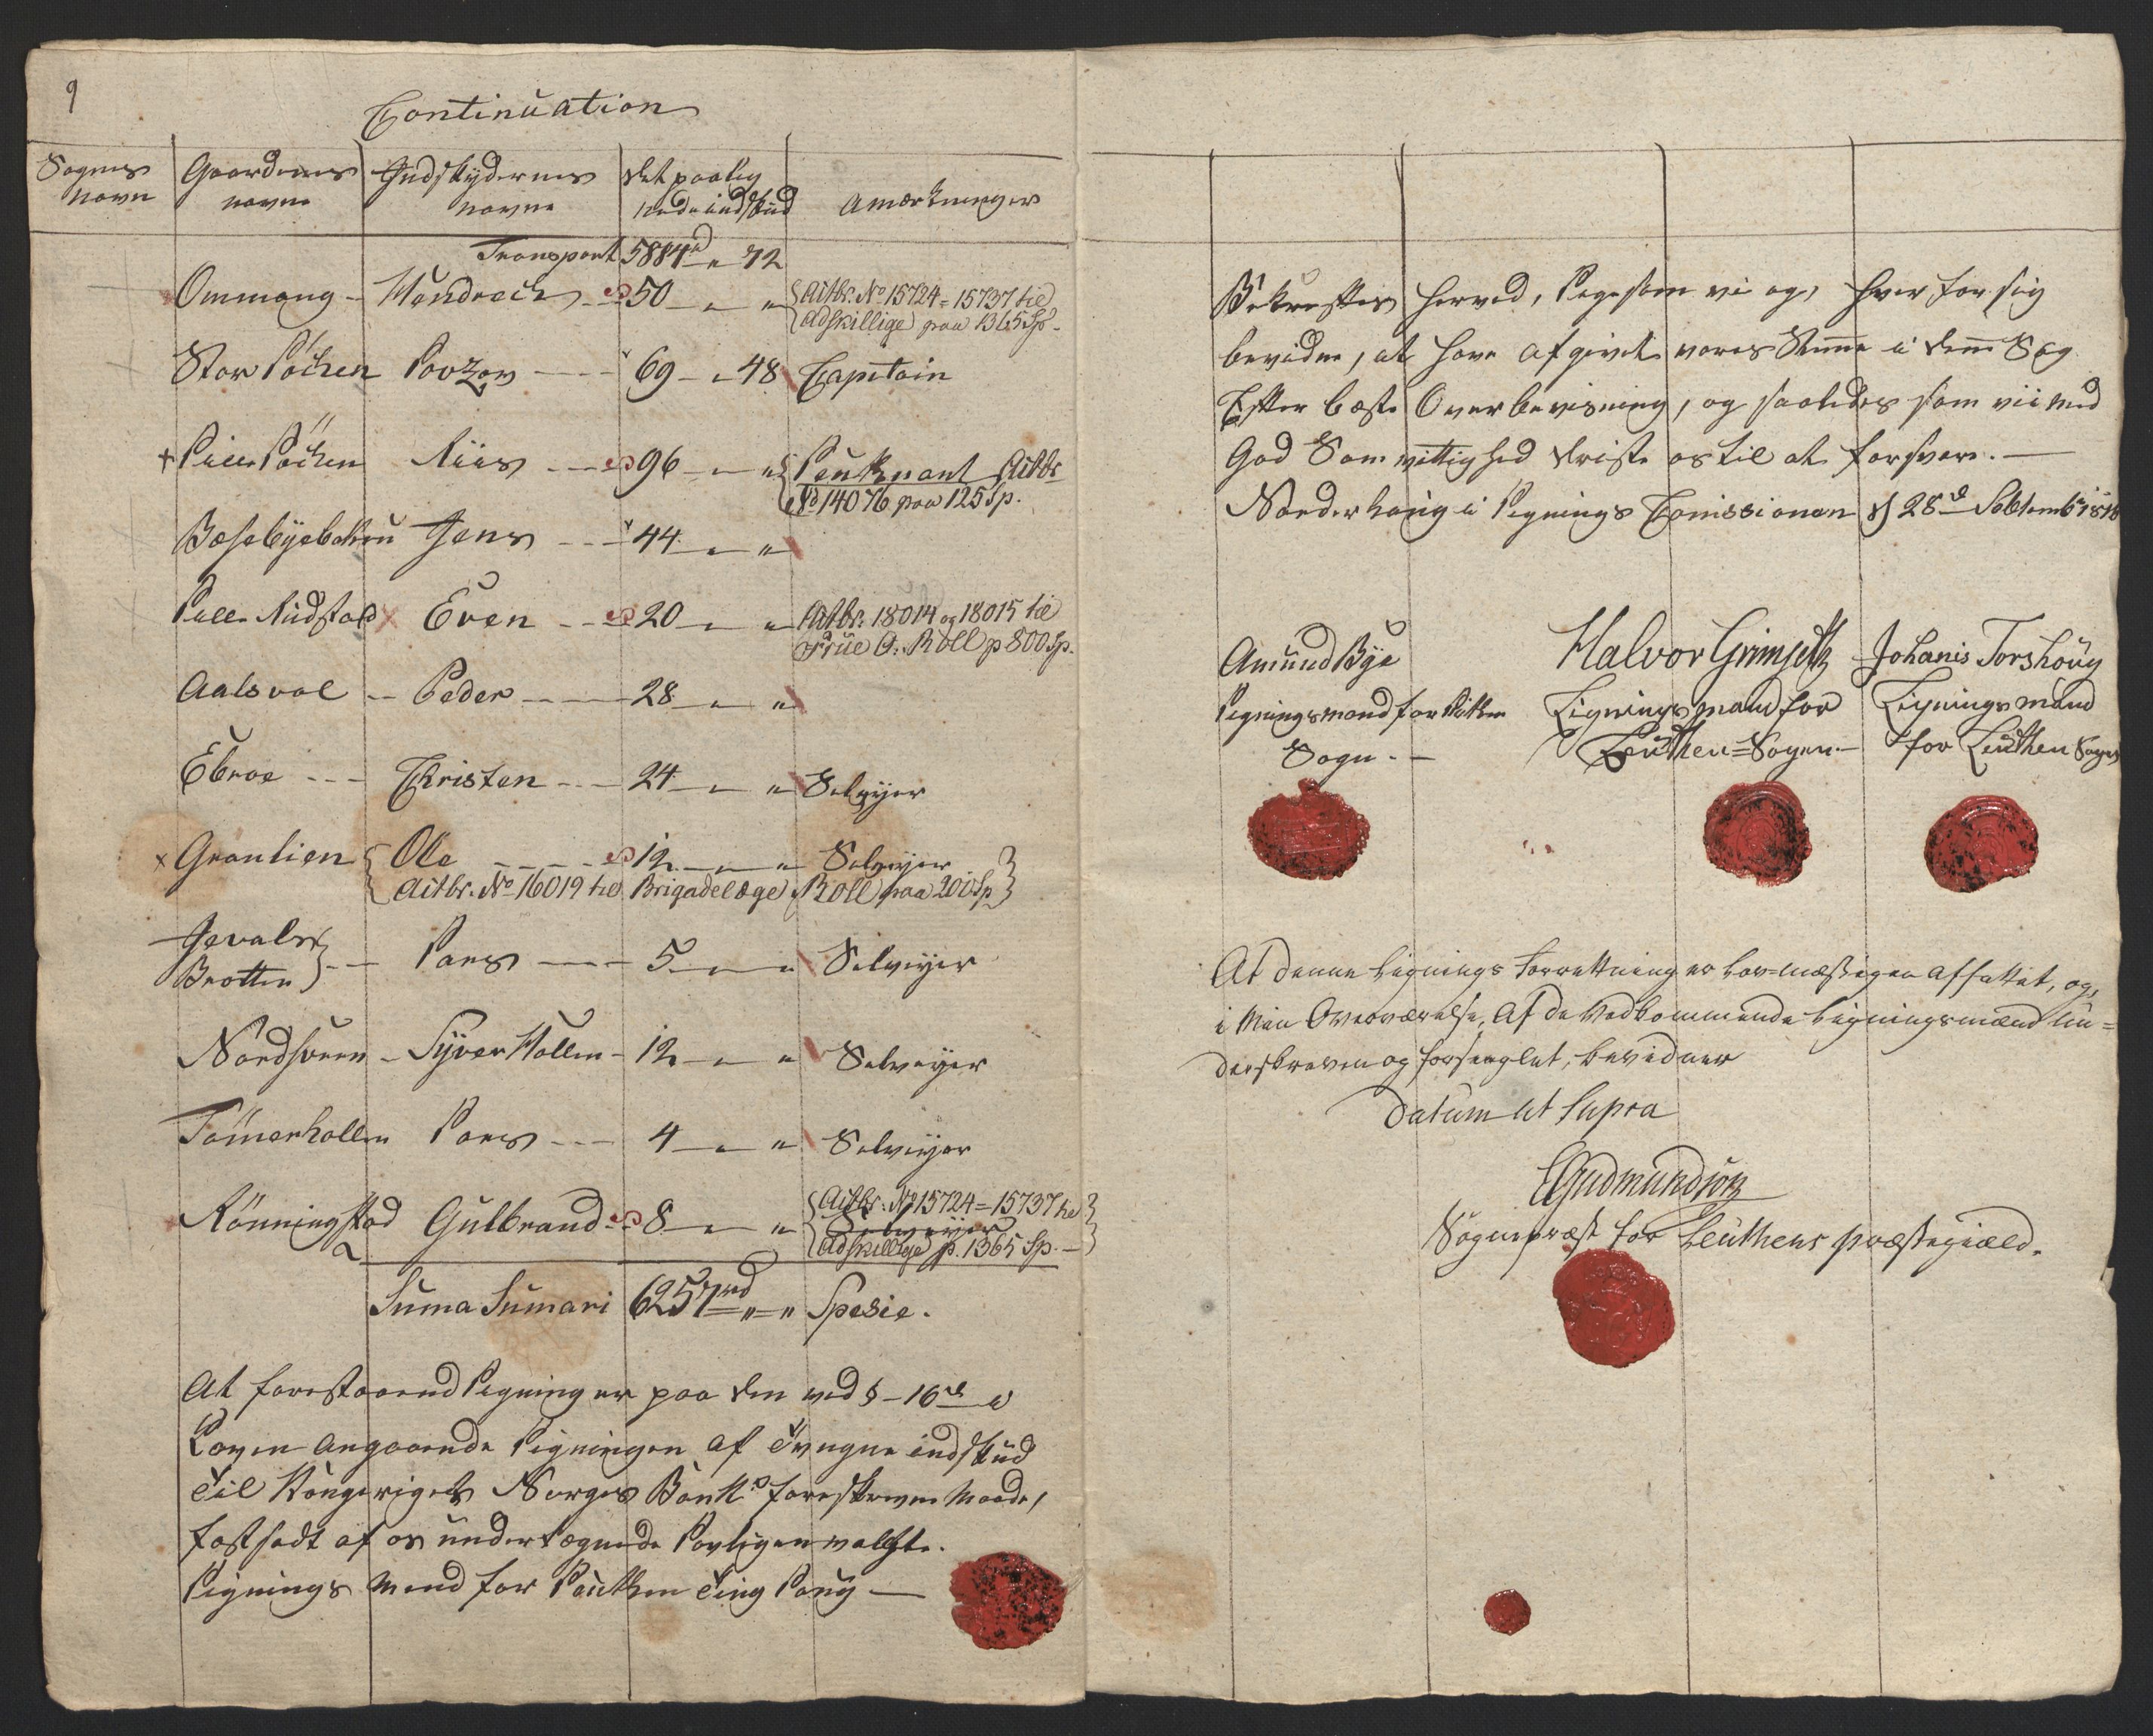 9
Continuation
Sognes Navn | Gaardenes navne | Indskydernes navne | Det paalignede indskud | Anmerkninger
Transport 5884 rd " 72
Ommang - Hendrech - 50 - " - " Actbr. No 15724 = 15737 til Adskillige paa 1365 Sp -
Stor Löchen - 69 - " 48 Capitain
+ Lille Löchen Riis - 96 - " - " Leutenant Actbr No 14076 paa 125 Sp.
Bæsebyebakken Jens - 44 - " - "
Lille Rudstad x Even - 20 - " - " Actbr. 18014 og 18015 til Frue A. Roll p 800 Sp.
Aalsvol - Peder - 28 - " - "
Ebroe - Christen - 24 - " - " Selveyer
x Grønlien Ole - 12 - " - " Selveyer
Actbr. No 16019 til Brigadelæge Roll paa 200 Sp
Brotten - Lars - 5 - " - " Selveyer
Nordsveen - Syver Hollen - 12 - " - " Selveyer
Tömerhollen Lars - 4 - " - " Selveyer
Rönningstad Gulbrand - 8 - " - " Actbr. No 15724 = 15737 til Selveyer Adskillige p. 1365 Sp. -
Suma Sumari 6257 rd " = " Spesie.
At forestaaend Ligning er paa den ved § - 16de i
Loven angaaende Ligningen af Tvungne indskud
Til Kongeriget Norges Bank foreskrevne Maade,
fastsadt af os undertegnede Lovligen valgte.
Lignings Mend for Löithen Ting Laug -
Bekreftes herved, Ligesom vi og, hver for sig
bevidne, at have afgivet vores Stemme i denne Sag
Efter beste Overbevisning, og saaledes som vii med
God Samvittighed drister os til at forsvare. -
Nordrehoug i Lignings Comissionen d 28de Sebtemb 1818
Amund Bye
Ligningsmand for Löiten
Sogn. -
Halvor Grimseth
Ligningsmand for
Leuthen = Sogen. -
Johanis Torshoug
Ligningsmand
for Leuthen Sogn
At denne Lignings Forretning er Lov-mæssigen affattet, og,
i Min Overværelse, Af de Vedkommende Ligningsmænd un=
derskreven og forseeglet, bevidner
Datum ut Supra
Gudmundson
Sognepræst for Leuthens præstegiæld.